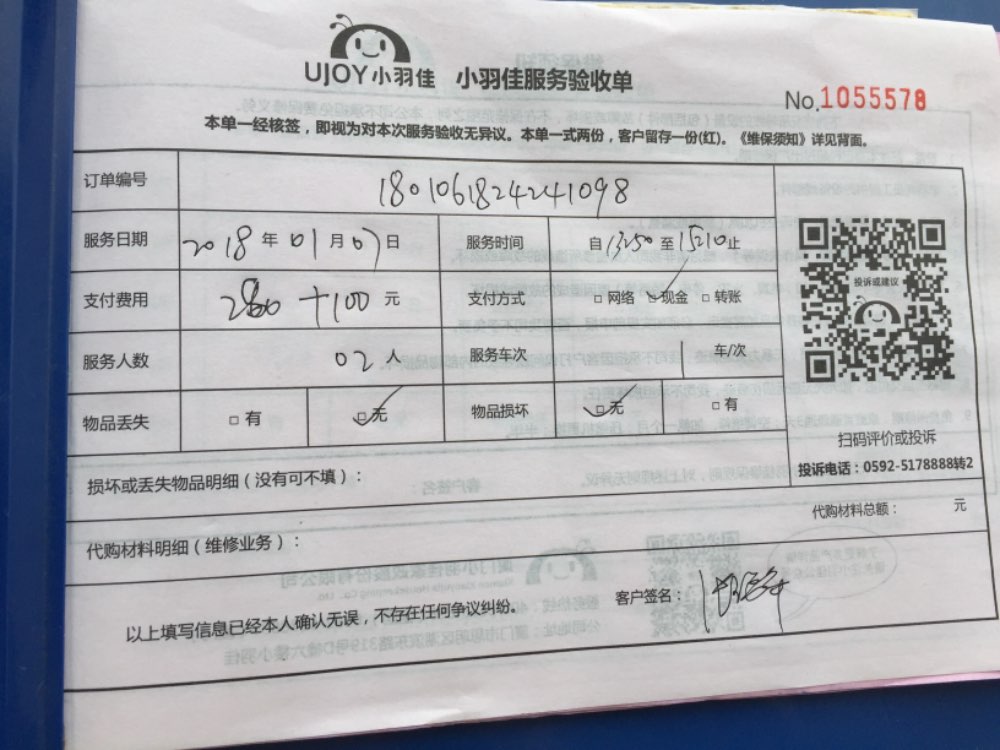 UJOY小羽佳 小羽佳服务验收单
No.1055578
本单一经核签，即视为对本次服务验收无异议。本单一式两份，客户留存一份(红)。《维保须知》详见背面。
订单编号 1801061824241098
服务日期 2018年01月07日 服务时间 自13:50至15:10止
支付费用 280+100元 支付方式 □网络 ☑现金 □转账
服务人数 02人 服务车次 车/次
物品丢失 □有 ☑无 物品损坏 ☑无 □有
投诉或建议
扫码评价或投诉
投诉电话：0592-5178888转2
损坏或丢失物品明细（没有可不填）：
代购材料总额： 元
代购材料明细（维修业务）：
客户签名：
以上填写信息已经本人确认无误，不存在任何争议纠纷。